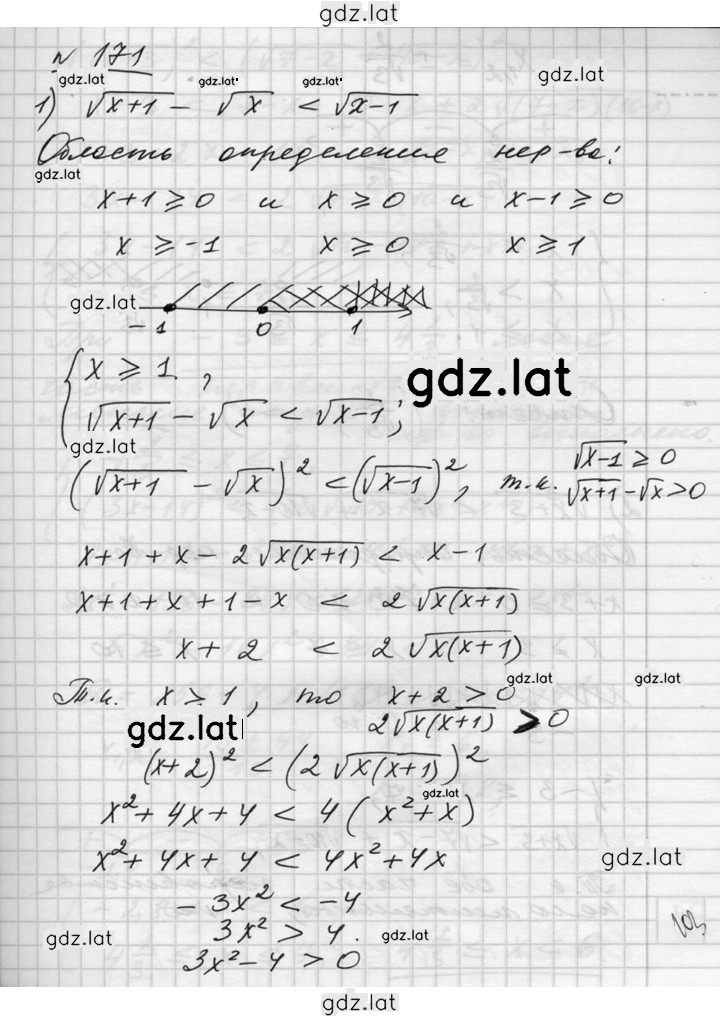 gdz.lat
№ 171
gdz.lat gdz.lat gdz.lat gdz.lat
1) √(x+1) - √x < √(x-1)
Область определения нер-ва:
gdz.lat
x+1 ⩾ 0 и x ⩾ 0 и x-1 ⩾ 0
x ⩾ -1 x ⩾ 0 x ⩾ 1
gdz.lat
-1 0 1
{ x ⩾ 1,
gdz.lat
√(x+1) - √x < √(x-1);
gdz.lat
(√(x+1) - √x)² < (√(x-1))², т.к. √(x-1) ⩾ 0
√(x+1) - √x > 0
x+1+x-2√(x(x+1)) < x-1
x+1+x+1-x < 2√(x(x+1))
x+2 < 2√(x(x+1))
gdz.lat gdz.lat
Т.к. x ⩾ 1, то x+2 > 0
2√(x(x+1)) > 0
gdz.lat
(x+2)² < (2√(x(x+1)))²
gdz.lat
x²+4x+4 < 4(x²+x)
x²+4x+4 < 4x²+4x
gdz.lat
-3x² < -4
3x² > 4.
gdz.lat gdz.lat
3x²-4 > 0
103
gdz.lat